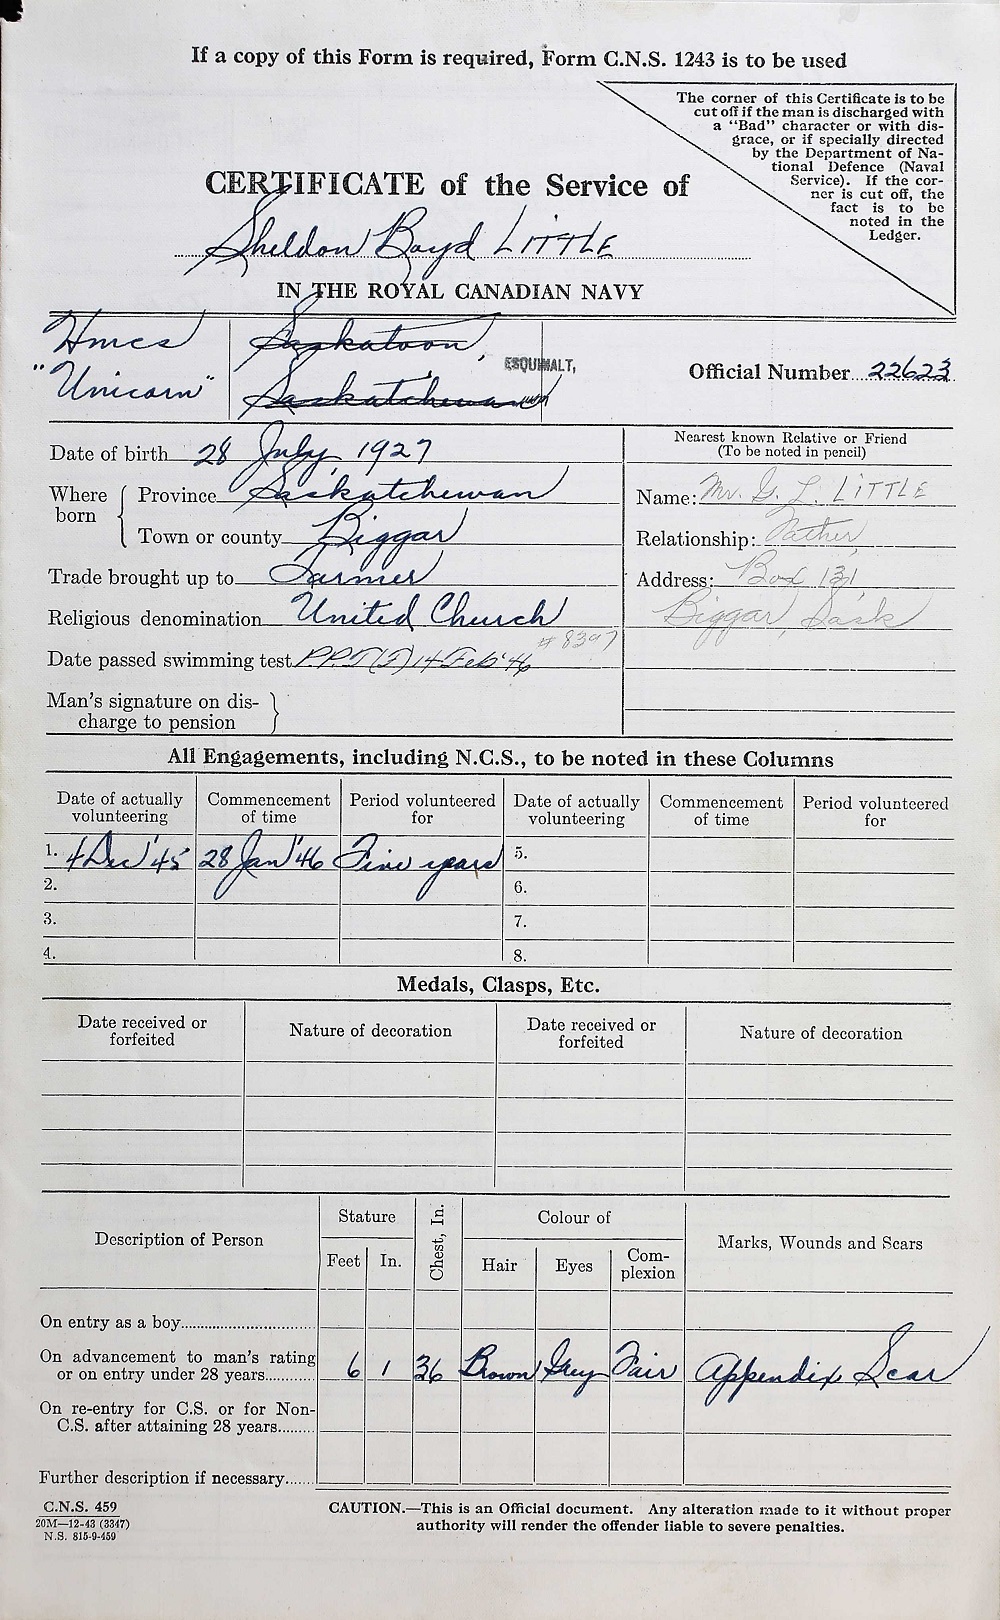 If a copy of this Form is required, Form C.N.S. 1243 is to be used
The corner of this Certificate is to be
cut off if the man is discharged with
a "Bad" character or with dis-
grace, or if specially directed
by the Department of Na-
tional Defence (Naval
Service). If the cor-
ner is cut off, the
fact is to be
noted in the
Ledger.
CERTIFICATE of the Service of
Sheldon Boyd LITTLE
IN THE ROYAL CANADIAN NAVY
Hmcs
"Unicorn"
Saskatoon,
Saskatchewan
ESQUIMALT,
Official Number 22623
Date of birth 28 July, 1927
Where born
Province Saskatchewan
Town or county Biggar
Trade brought up to Farmer
Religious denomination United Church
# 8397
Date passed swimming test P.P.T.(T) 14 Feb '46
Man's signature on dis-
charge to pension
Nearest known Relative or Friend
(To be noted in pencil)
Name: Mr. G. L. LITTLE
Relationship: Father
Address: Box 131,
Biggar, Sask
All Engagements, including N.C.S., to be noted in these Columns
Date of actually volunteering Commencement of time Period volunteered for Date of actually volunteering Commencement of time Period volunteered for
1. 4 Dec '45 28 Jan '46 Five years 5.
2. 6.
3. 7.
4. 8.
Medals, Clasps, Etc.
Date received or forfeited Nature of decoration Date received or forfeited Nature of decoration
Description of Person Stature Chest, In. Colour of Marks, Wounds and Scars
Feet In. Hair Eyes Com-
plexion
On entry as a boy
On advancement to man's rating
or on entry under 28 years 6 1 36 Brown Grey Fair Appendix Scar
On re-entry for C.S. or for Non-
C.S. after attaining 28 years
Further description if necessary
C.N.S. 459
20M—12-43 (3347)
N.S. 815-9-459
CAUTION.—This is an Official document. Any alteration made to it without proper
authority will render the offender liable to severe penalties.